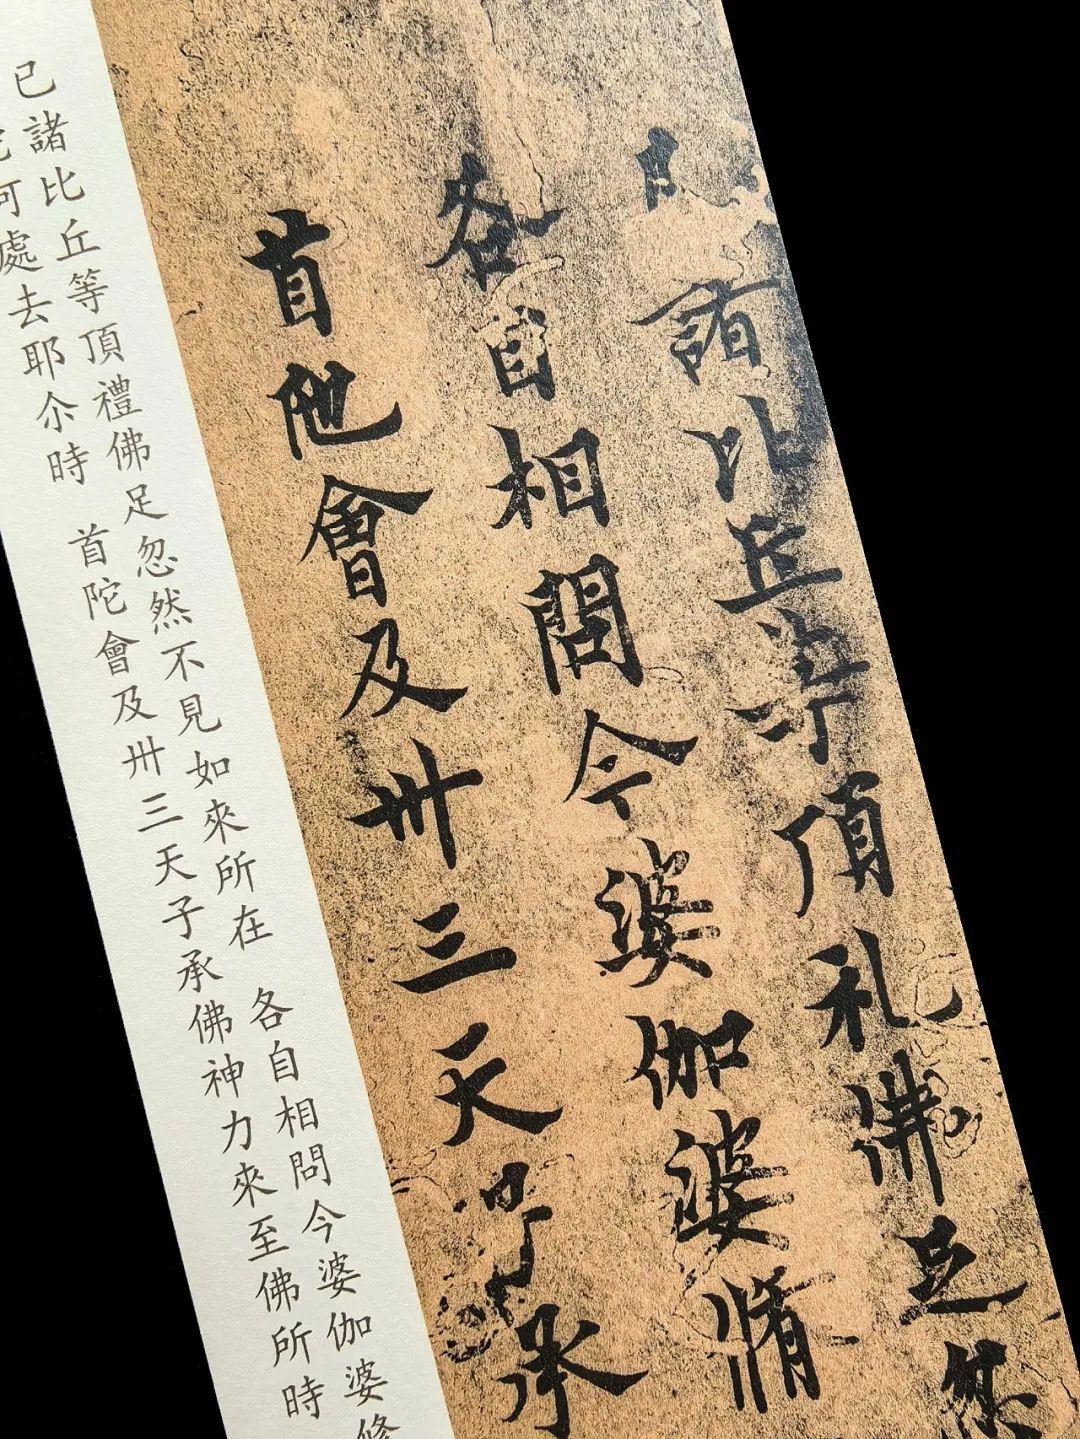 諸比丘等頂礼佛足忽
各自相問今婆伽婆脩
首陁會及卅三天子承
已諸比丘等頂禮佛足忽然不見如來所在 各自相問今婆伽婆修
何處去耶尒時 首陀會及卅三天子承佛神力來至佛所時